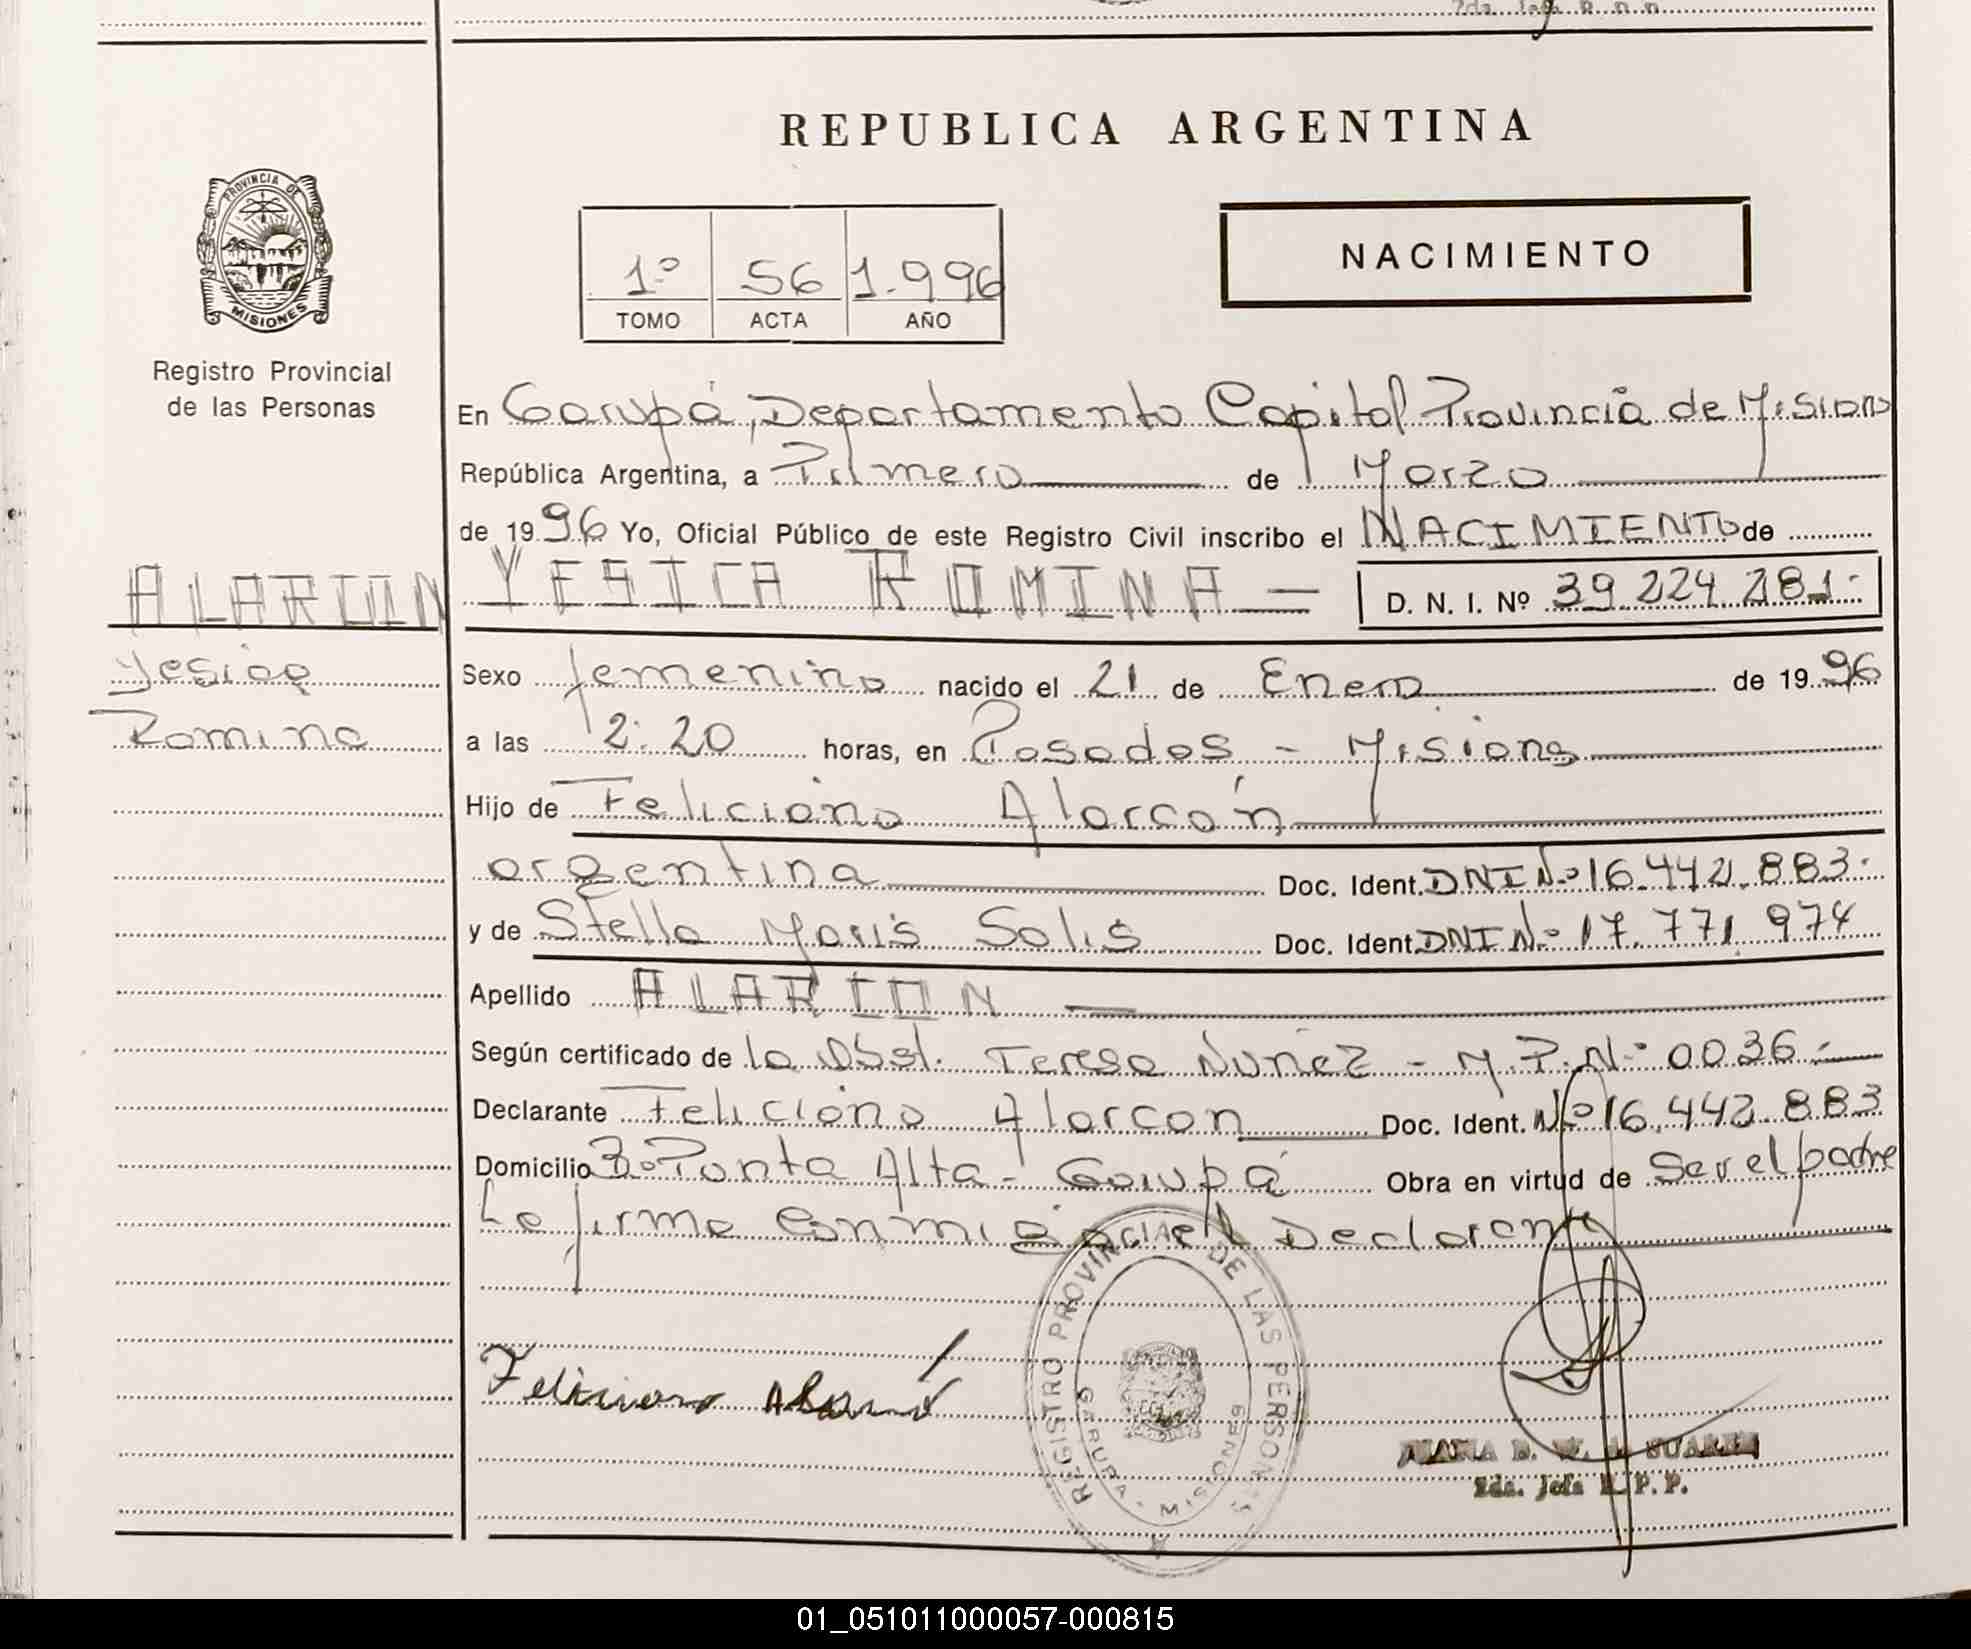 REPUBLICA ARGENTINA
PROVINCIA DE
MISIONES
Registro Provincial
de las Personas
1º 56 1.996
TOMO ACTA AÑO
NACIMIENTO
En Garupá, Departamento Capital Provincia de Misiones
República Argentina, a Primero de Marzo
de 1996 Yo, Oficial Público de este Registro Civil inscribo el NACIMIENTO de
ALARCON YESICA ROMINA — D. N. I. Nº 39.224.281.-
Yesica
Romina
Sexo femenino nacido el 21 de Enero de 1996
a las 12:20 horas, en Posadas - Misiones
Hijo de Feliciano Alarcón
argentina Doc. Ident. DNI Nº 16.442.883.
y de Stella Maris Solis Doc. Ident. DNI Nº 17.771.974
Apellido ALARCON —
Según certificado de la Obst. Teresa Nuñez - M.P.Nº 0036.-
Declarante Feliciano Alarcon Doc. Ident. Nº 16.442.883
Domicilio Bº Punta Alta - Garupá Obra en virtud de Ser el padre
Le firma conmigo el Declarante
REGISTRO PROVINCIAL DE LAS PERSONAS
GARUPA - MISIONES
Feliciano Alarcón
SUAREZ
2da. Jefa R.P.P.
01_051011000057-000815